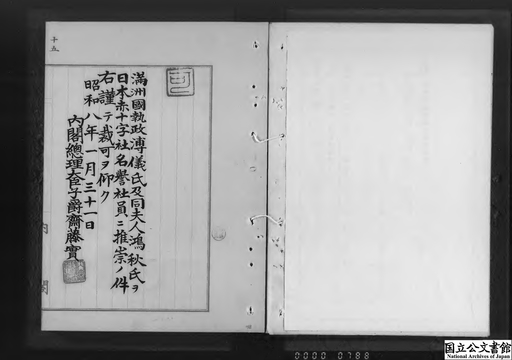 十五
満洲國執政溥儀氏及同夫人鴻秋氏ヲ
日本赤十字社名譽社員ニ推崇ノ件
右謹テ裁可ヲ仰ク
昭和八年一月三十一日
內閣總理大臣子爵齋藤實
內閣
0000 0788
国立公文書館
National Archives of Japan